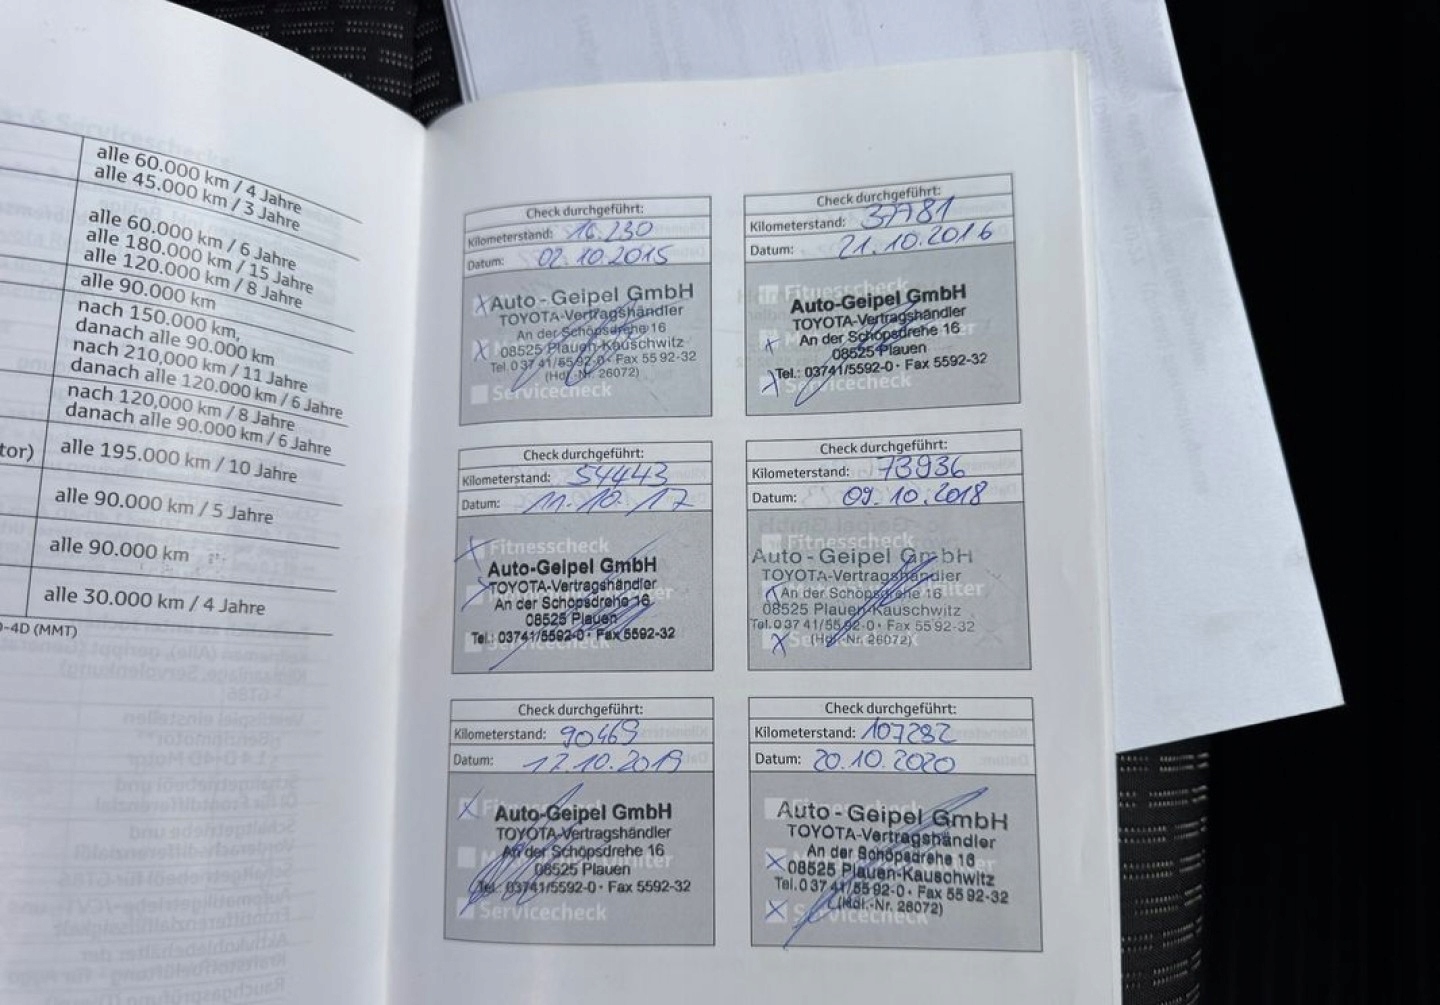 alle 60.000 km / 4 Jahre
alle 45.000 km / 3 Jahre
alle 60.000 km / 6 Jahre
alle 180.000 km / 15 Jahre
alle 120.000 km / 8 Jahre
alle 90.000 km
nach 150.000 km,
danach alle 90.000 km
nach 210,000 km / 11 Jahre
danach alle 120.000 km / 6 Jahre
nach 120,000 km / 8 Jahre
danach alle 90.000 km / 6 Jahre
tor) alle 195.000 km / 10 Jahre
alle 90.000 km / 5 Jahre
alle 90.000 km
alle 30.000 km / 4 Jahre
0-4D (MMT)
Check durchgeführt:
Kilometerstand: 16.230
Datum: 02.10.2015
Auto-Geipel GmbH
TOYOTA-Vertragshändler
An der Schöpsdrehe 16
08525 Plauen-Kauschwitz
Tel. 037 41/55 92-0 · Fax 55 92-32
(Hdl.-Nr. 26072)
Servicecheck
Check durchgeführt:
Kilometerstand: 37781
Datum: 21.10.2016
Fitnesscheck
Auto-Geipel GmbH
TOYOTA-Vertragshändler
An der Schöpsdrehe 16
08525 Plauen
Tel.: 03741/5592-0 · Fax 5592-32
Servicecheck
Check durchgeführt:
Kilometerstand: 54443
Datum: 11.10.17
Fitnesscheck
Auto-Geipel GmbH
TOYOTA-Vertragshändler
An der Schöpsdrehe 16
08525 Plauen
Tel.: 03741/5592-0 · Fax 5592-32
Servicecheck
Check durchgeführt:
Kilometerstand: 73936
Datum: 09.10.2018
Fitnesscheck
Auto-Geipel GmbH
TOYOTA-Vertragshändler
An der Schöpsdrehe 16
08525 Plauen-Kauschwitz
Tel. 037 41/55 92-0 · Fax 55 92-32
(Hdl.-Nr. 26072)
Check durchgeführt:
Kilometerstand: 90469
Datum: 12.10.2019
Auto-Geipel GmbH
TOYOTA-Vertragshändler
An der Schöpsdrehe 16
08525 Plauen
Tel.: 03741/5592-0 · Fax 5592-32
Servicecheck
Check durchgeführt:
Kilometerstand: 107282
Datum: 20.10.2020
Auto-Geipel GmbH
TOYOTA-Vertragshändler
An der Schöpsdrehe 16
08525 Plauen-Kauschwitz
Tel. 037 41/55 92-0 · Fax 55 92-32
(Hdl.-Nr. 26072)
Servicecheck